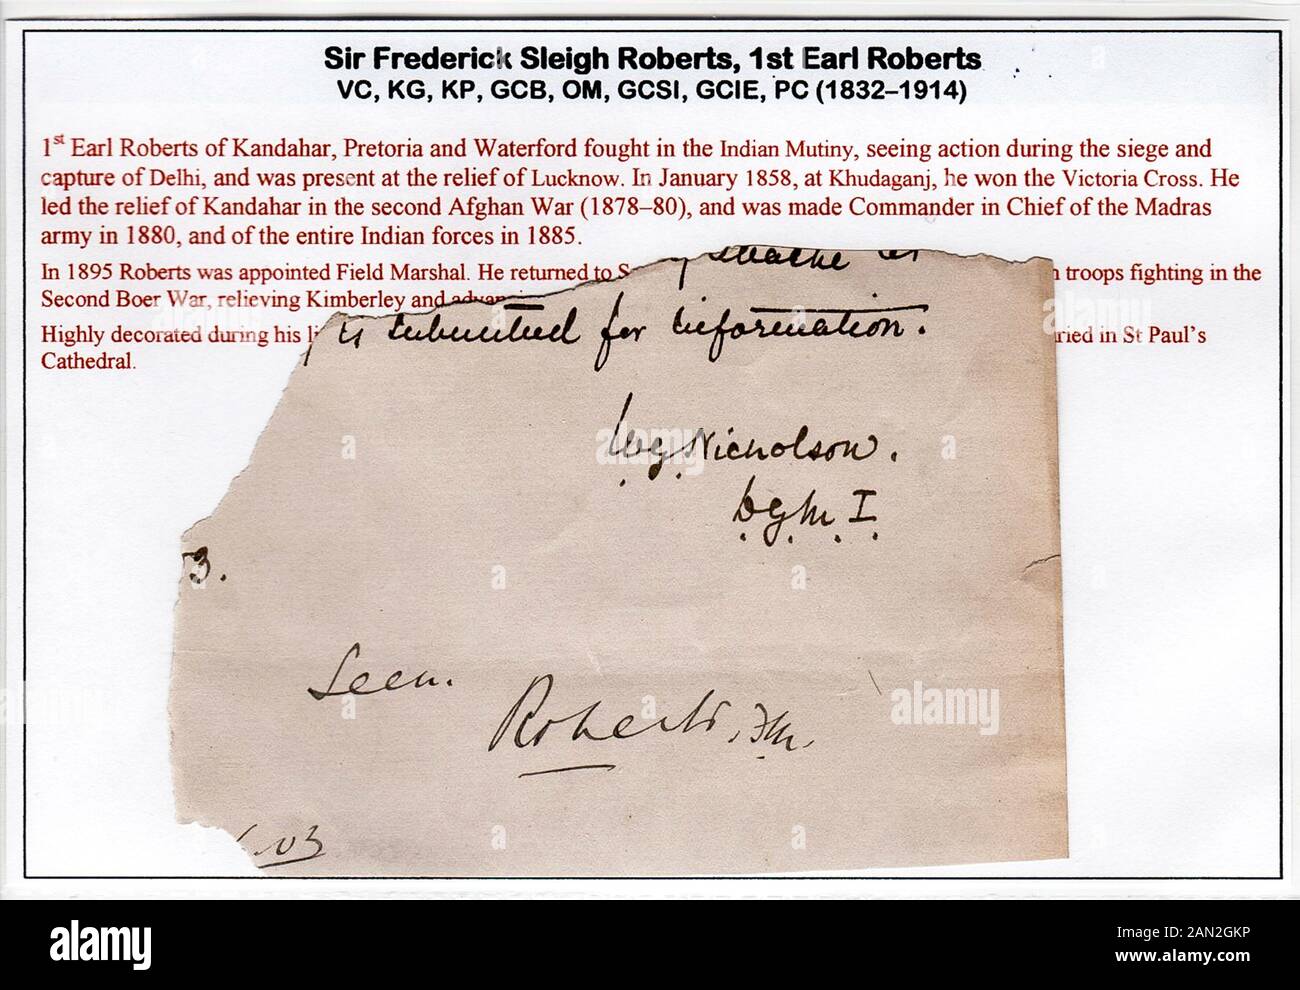 Sir Frederick Sleigh Roberts, 1st Earl Roberts
VC, KG, KP, GCB, OM, GCSI, GCIE, PC (1832–1914)
1st Earl Roberts of Kandahar, Pretoria and Waterford fought in the Indian Mutiny, seeing action during the siege and
capture of Delhi, and was present at the relief of Lucknow. In January 1858, at Khudaganj, he won the Victoria Cross. He
led the relief of Kandahar in the second Afghan War (1878–80), and was made Commander in Chief of the Madras
army in 1880, and of the entire Indian forces in 1885.
In 1895 Roberts was appointed Field Marshal. He returned to S troops fighting in the
Second Boer War, relieving Kimberley and
Highly decorated during his St Paul's
Cathedral.
is submitted for information.
W.G. Nicholson.
D.G.M.I.
3.
Seen.
Roberts, F.M.
.03
alamy
Image ID: 2AN2GKP
www.alamy.com